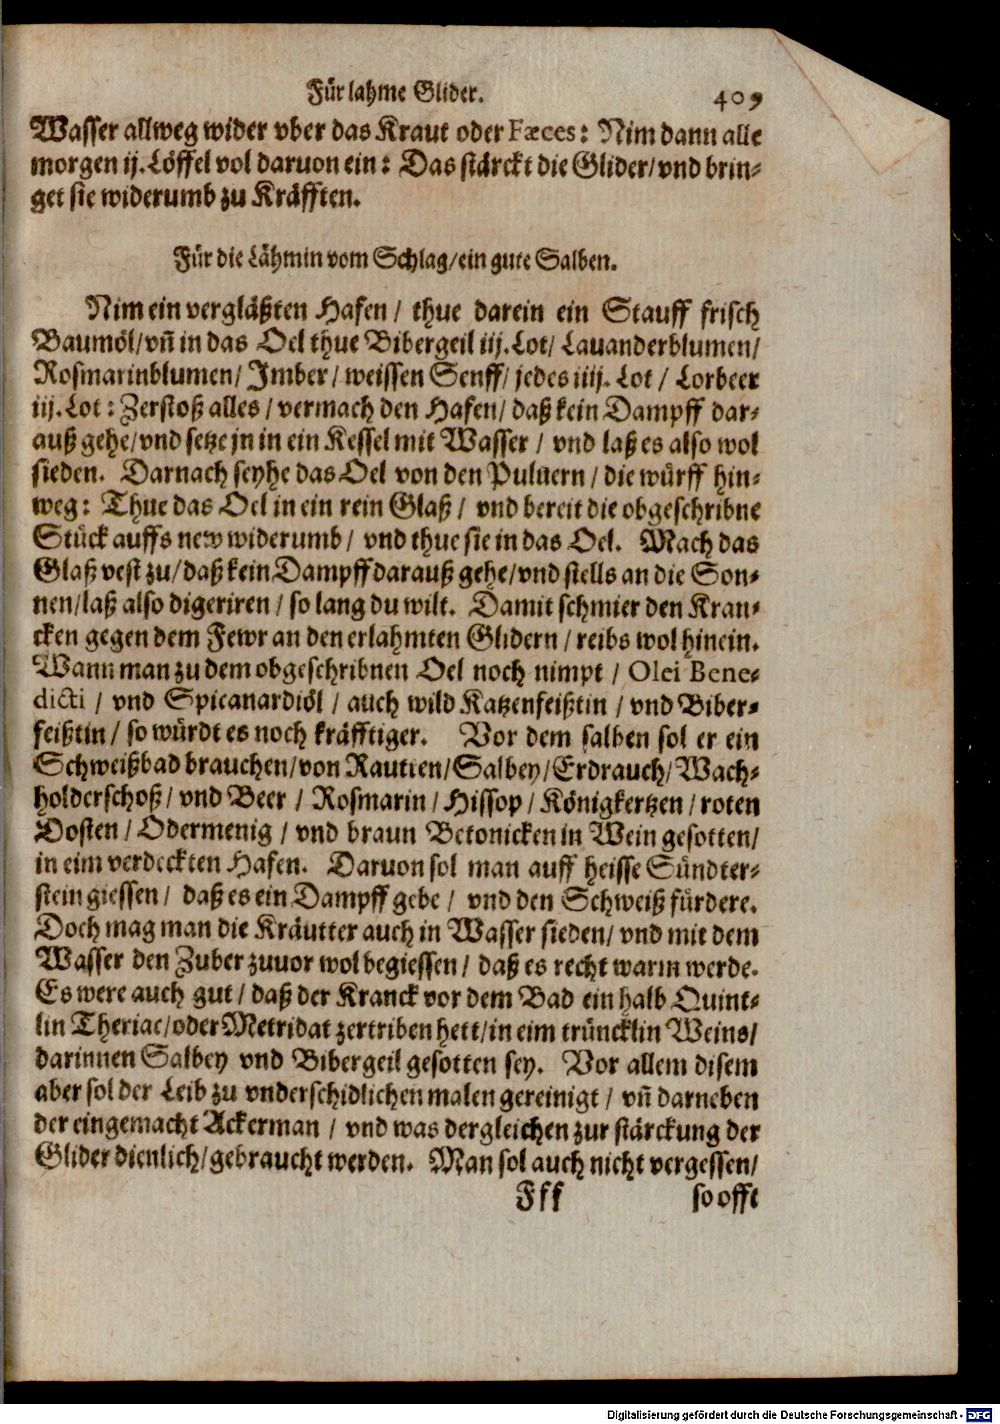 Für lahme Glider. 409
Wasser allweg wider vber das Kraut oder Fæces: Nim dann alle
morgen ij. Löffel vol daruon ein: Das stärckt die Glider/ vnd brin-
get sie widerumb zu Kräfften.
Für die Lähmin vom Schlag/ ein gute Salben.
Nim ein verglåßten Hafen / thue darein ein Stauff frisch
Baumöl/ vñ in das Oel thue Bibergeil iij. Lot/ Lauanderblumen/
Rosmarinblumen/ Imber/ weissen Senff/ jedes iiij. Lot / Lorbeer
iij. Lot: Zerstoß alles / vermach den Hafen/ daß kein Dampff dar-
auß gehe/ vnd setze jn in ein Kessel mit Wasser / vnd laß es also wol
sieden. Darnach seyhe das Oel von den Puluern / die würff hin-
weg: Thue das Oel in ein rein Glaß / vnd bereit die obgeschribne
Stück auffs new widerumb/ vnd thue sie in das Oel. Mach das
Glaß vest zu/ daß kein Dampff darauß gehe/ vnd stells an die Son-
nen/ laß also digeriren / so lang du wilt. Damit schmier den Kran-
cken gegen dem Fewr an den erlahmten Glidern / reibs wol hinein.
Wann man zu dem obgeschribnen Oel noch nimpt / Olei Bene-
dicti / vnd Spicanardiöl / auch wild Katzenfeißtin / vnd Biber-
feißtin / so würdt es noch kräfftiger. Vor dem salben sol er ein
Schweißbad brauchen/ von Rautten/ Salbey/ Erdrauch/ Wach-
holderschoß/ vnd Beer / Rosmarin/ Hissop/ Königkertzen / roten
Dosten / Odermenig / vnd braun Betonicken in Wein gesotten/
in eim verdeckten Hafen. Daruon sol man auff heisse Sündter-
stein giessen/ daß es ein Dampff gebe / vnd den Schweiß fürdere.
Doch mag man die Kräutter auch in Wasser sieden/ vnd mit dem
Wasser den Zuber zuuor wol begiessen / daß es recht warm werde.
Es were auch gut / daß der Kranck vor dem Bad ein halb Quint-
lin Theriac/ oder Metridat zertriben hett/ in eim trüncklin Weins/
darinnen Salbey vnd Bibergeil gesotten sey. Vor allem disem
aber sol der Leib zu vnderschidlichen malen gereinigt / vñ darneben
der eingemacht Ackerman / vnd was dergleichen zur stärckung der
Glider dienlich/ gebraucht werden. Man sol auch nicht vergessen/
Fff so offt
Digitalisierung gefördert durch die Deutsche Forschungsgemeinschaft - DFG